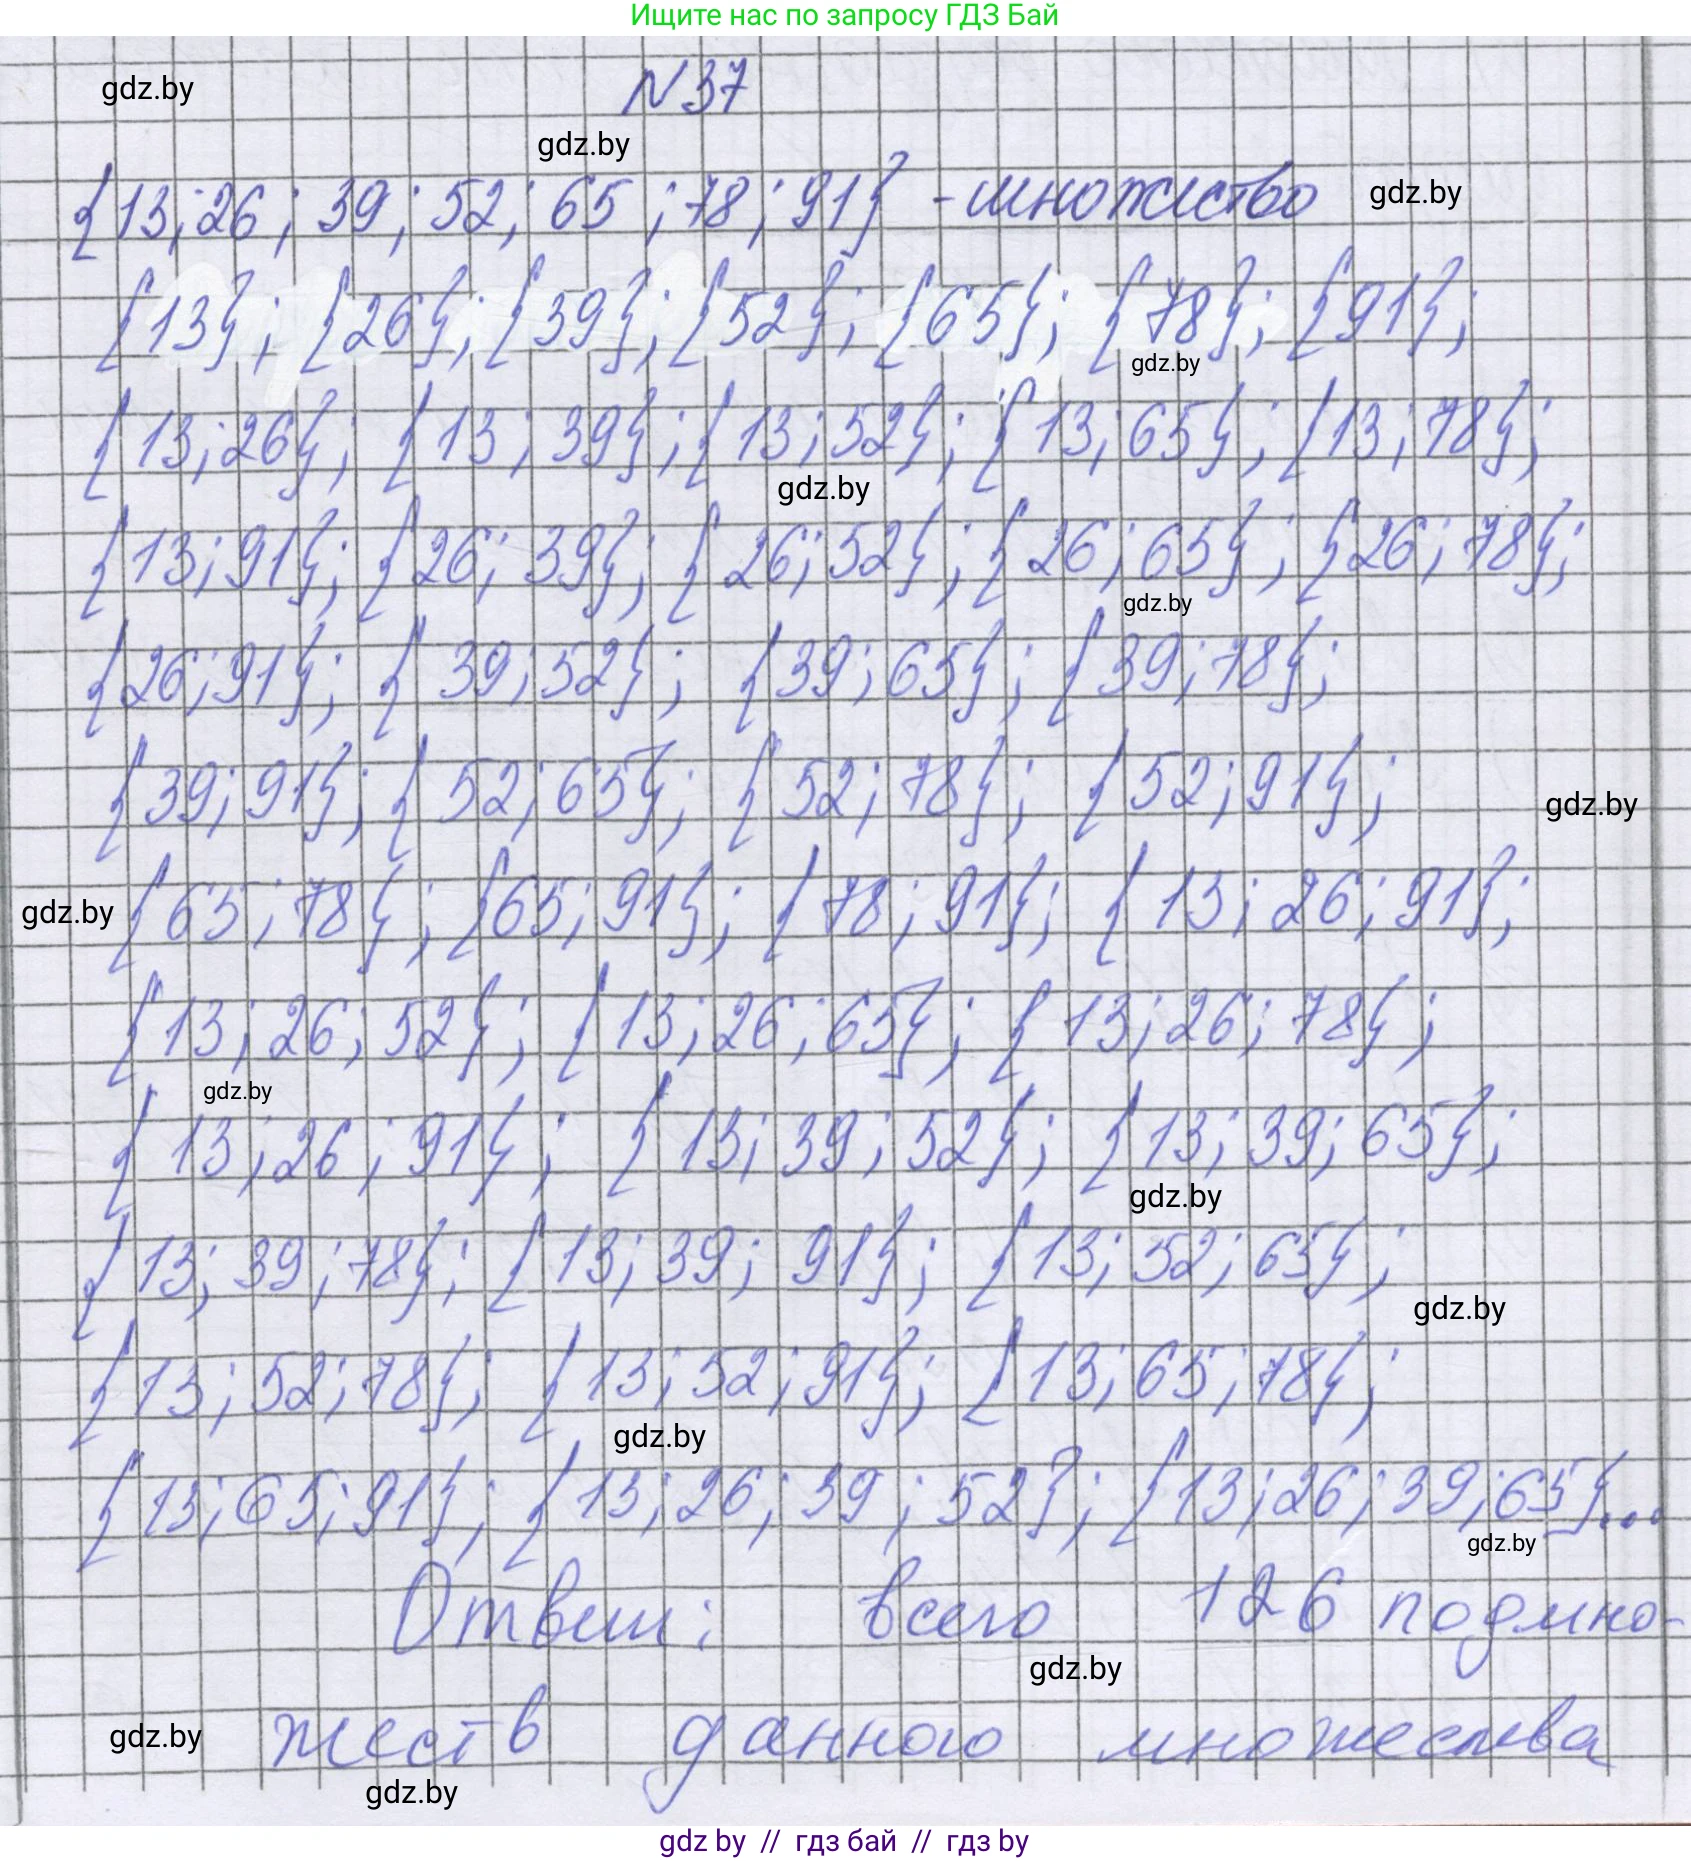 Ищите нас по запросу ГДЗ Бай
gdz.by
N 37
gdz.by
{13; 26; 39; 52; 65; 78; 91} - множество
gdz.by
{13}; {26}; {39}; {52}; {65}; {78}; {91};
gdz.by
{13; 26}; {13; 39}; {13; 52}; {13; 65}; {13; 78};
gdz.by
{13; 91}; {26; 39}; {26; 52}; {26; 65}; {26; 78};
gdz.by
{26; 91}; {39; 52}; {39; 65}; {39; 78};
{39; 91}; {52; 65}; {52; 78}; {52; 91};
gdz.by
gdz.by
{65; 78}; {65; 91}; {78; 91}; {13; 26; 91};
{13; 26; 52}; {13; 26; 65}; {13; 26; 78};
gdz.by
{13; 26; 91}; {13; 39; 52}; {13; 39; 65};
gdz.by
{13; 39; 78}; {13; 39; 91}; {13; 52; 65};
gdz.by
{13; 52; 78}; {13; 52; 91}; {13; 65; 78};
gdz.by
{13; 65; 91}; {13; 26; 39; 52}; {13; 26; 39; 65}...
gdz.by
Ответ: всего 126 подмно-
gdz.by
жеств данного множества
gdz.by
gdz.by
gdz by // гдз бай // гдз by